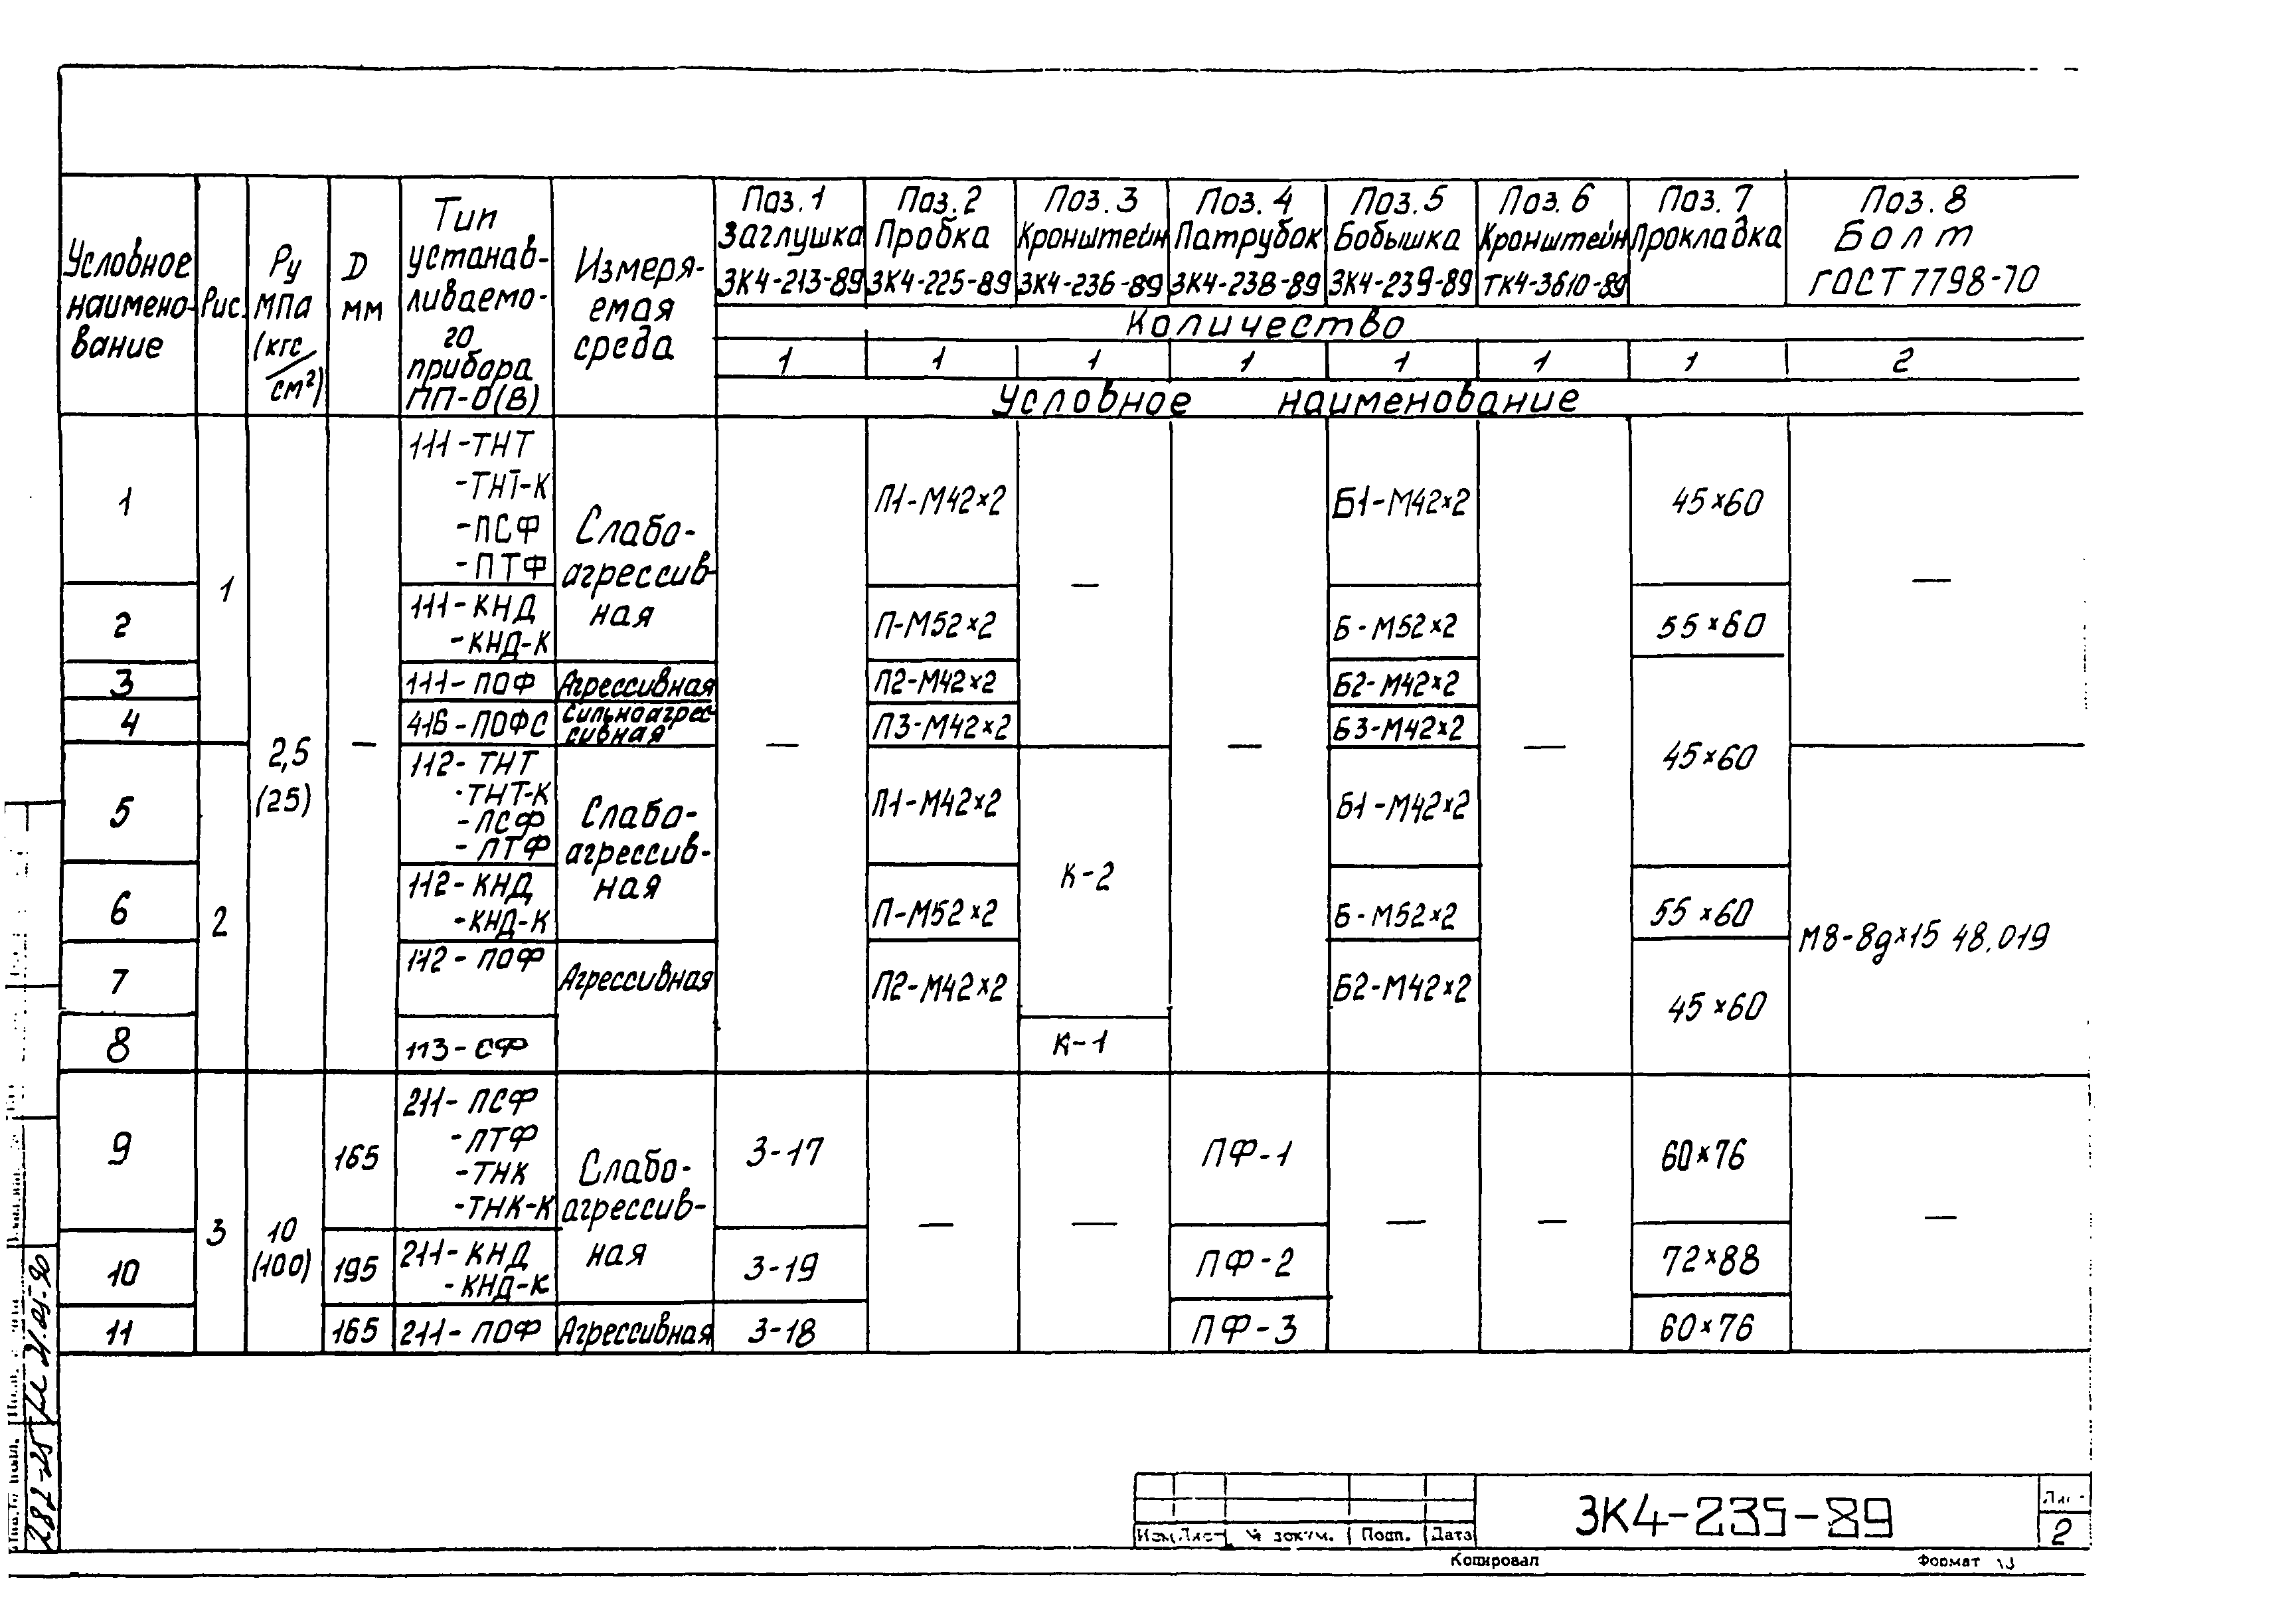 Условное наимено- вание
Рис.
Ру МПа (кгс/см²)
D мм
Тип устанав- ливаемо- го прибора ПП-О(В)
Измеря- емая среда
Поз. 1 Заглушка ЗК4-213-89
Поз. 2 Пробка ЗК4-225-89
Поз. 3 Кронштейн ЗК4-236-89
Поз. 4 Патрубок ЗК4-238-89
Поз. 5 Бобышка ЗК4-239-89
Поз. 6 Кронштейн ТК4-3610-89
Поз. 7 Прокладка
Поз. 8 Болт ГОСТ 7798-70
Количество
1 1 1 1 1 1 1 2
Условное наименование
1
1
2,5 (25)
—
111-ТНТ
-ТНТ-К
-ПСФ
-ПТФ
Слабо-
агрессив-
ная
—
П1-М42×2
—
—
Б1-М42×2
—
45×60
—
2
111-КНД
-КНД-К
П-М52×2
Б-М52×2
55×60
3
111-ПОФ
Агрессивная
П2-М42×2
Б2-М42×2
45×60
4
416-ПОФС
Сильноагрес-
сивная
П3-М42×2
Б3-М42×2
5
2
112-ТНТ
-ТНТ-К
-ПСФ
-ПТФ
Слабо-
агрессив-
ная
П1-М42×2
К-2
Б1-М42×2
М8-8g×15 48.019
6
112-КНД
-КНД-К
П-М52×2
Б-М52×2
55×60
7
112-ПОФ
Агрессивная
П2-М42×2
Б2-М42×2
45×60
8
113-СФ
К-1
9
3
10
(100)
165
211-ПСФ
-ПТФ
-ТНК
-ТНК-К
Слабо-
агрессив-
ная
З-17
—
—
ПФ-1
—
—
60×76
—
10
195
211-КНД
-КНД-К
З-19
ПФ-2
72×88
11
165
211-ПОФ
Агрессивная
З-18
ПФ-3
60×76
282-25
21.05.90
Изм. Лист № докум. Подп. Дата
ЗК4-235-89
Лист
2
Копировал
Формат А3